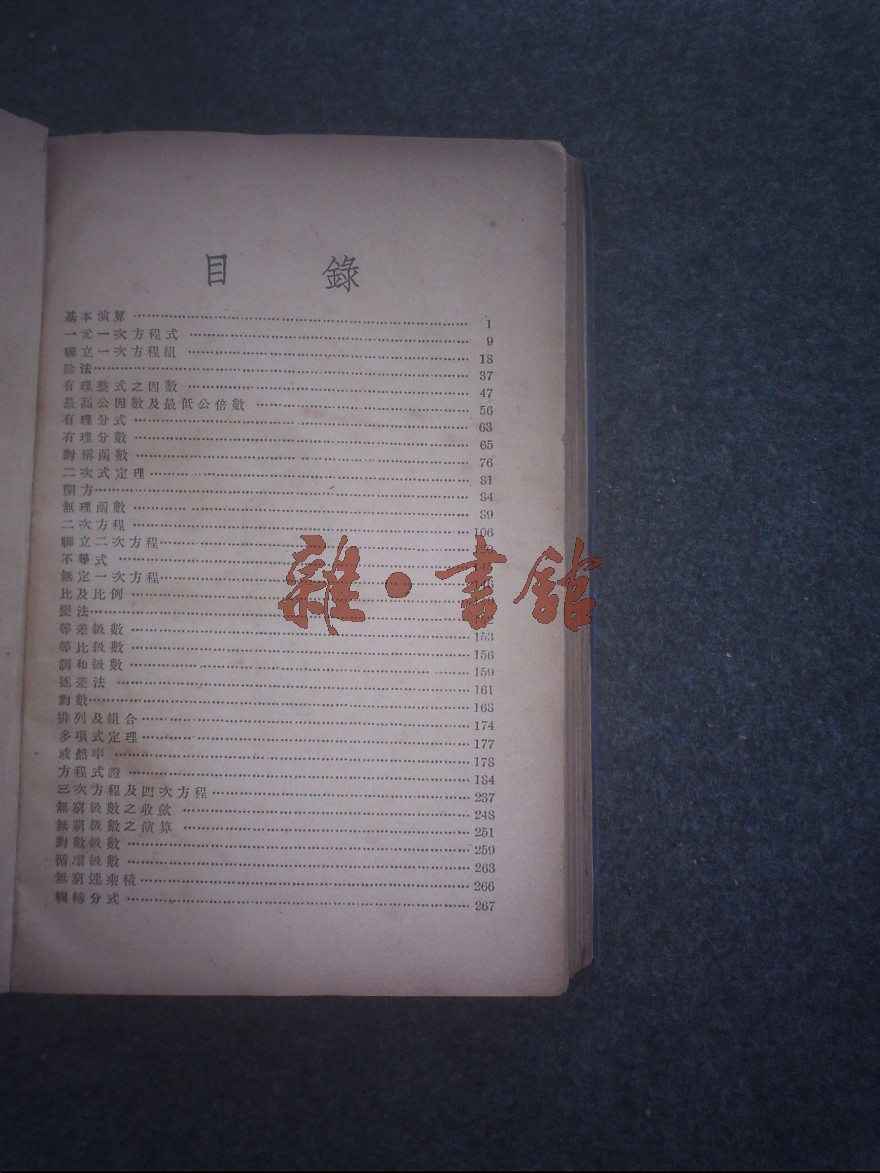 目錄
基本演算 1
一元一次方程式 9
聯立一次方程組 18
除法 37
有理整式之因數 47
最高公因數及最低公倍數 56
有理分式 63
有理分數 65
對稱函數 76
二次式定理 81
開方 84
無理函數 89
二次方程 106
聯立二次方程
不等式
無定一次方程
比及比例
變法
等差級數 153
等比級數 156
調和級數 159
逐差法 161
對數 163
排列及組合 174
多項式定理 177
或然率 178
方程式證 184
三次方程及四次方程 237
無窮級數之收歛 248
無窮級數之演算 251
對數級數 259
循環級數 263
無窮連乘積 266
輾轉分式 267
雜·書館